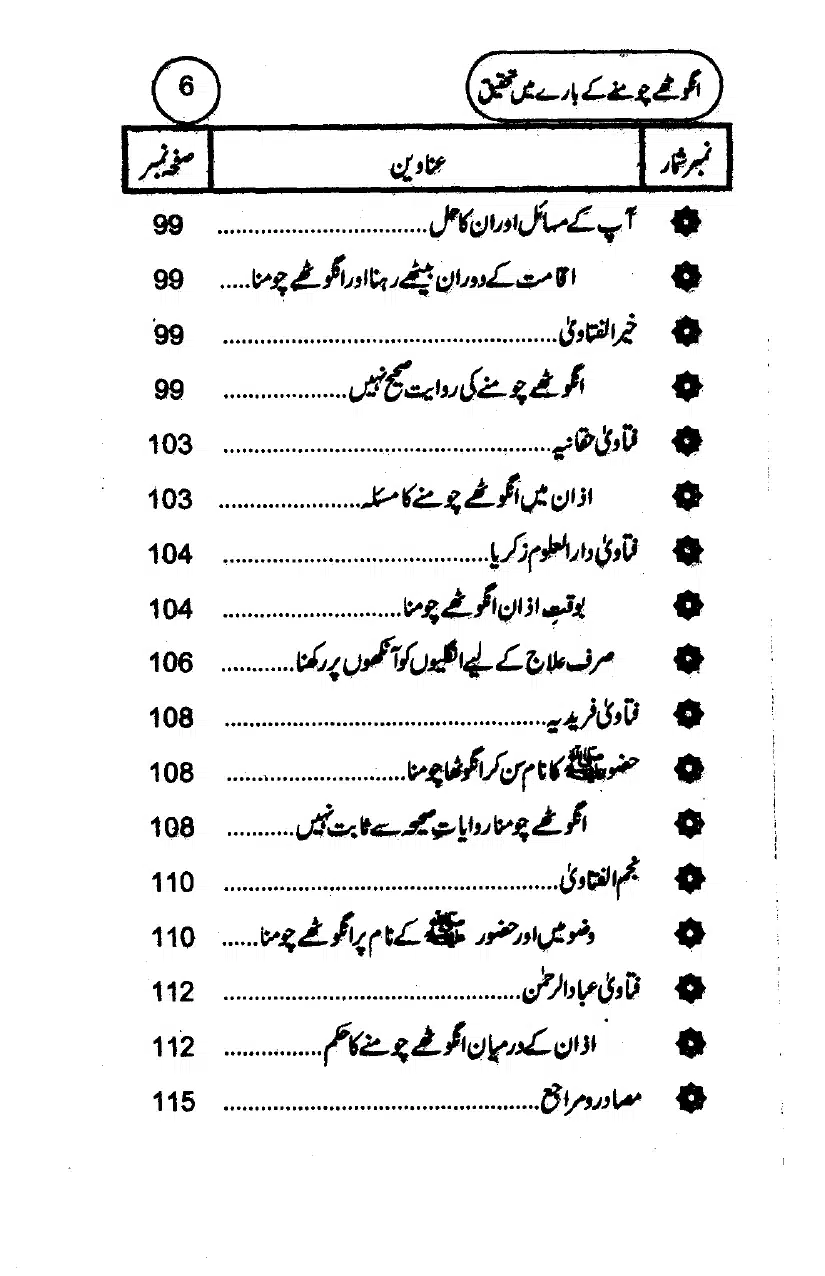 انگوٹھے چومنے کے بارے میں تحقیق 6
نمبر شمار عناوین صفحہ نمبر
آپ کے مسائل اور ان کا حل.................................. 99
اقامت کے دوران بیٹھے رہنا اور انگوٹھے چومنا..... 99
خیر الفتاویٰ...................................................... 99
انگوٹھے چومنے کی روایت صحیح نہیں.................... 99
فتاویٰ حقانیہ..................................................... 103
اذان میں انگوٹھے چومنے کا مسئلہ....................... 103
فتاویٰ دار العلوم زکریا........................................... 104
بوقتِ اذان انگوٹھے چومنا............................. 104
صرف علاج کے لیے انگلیوں کو آنکھوں پر رکھنا............ 106
فتاویٰ فریدیہ.................................................... 108
حضور ﷺ کا نام سن کر انگوٹھا چومنا............................. 108
انگوٹھے چومنا روایاتِ صحیحہ سے ثابت نہیں........... 108
نجم الفتاویٰ...................................................... 110
وضو میں اور حضور ﷺ کے نام پر انگوٹھے چومنا...... 110
فتاویٰ عباد الرحمٰن................................................ 112
اذان کے درمیان انگوٹھے چومنے کا حکم................ 112
مصادر و مراجع................................................... 115